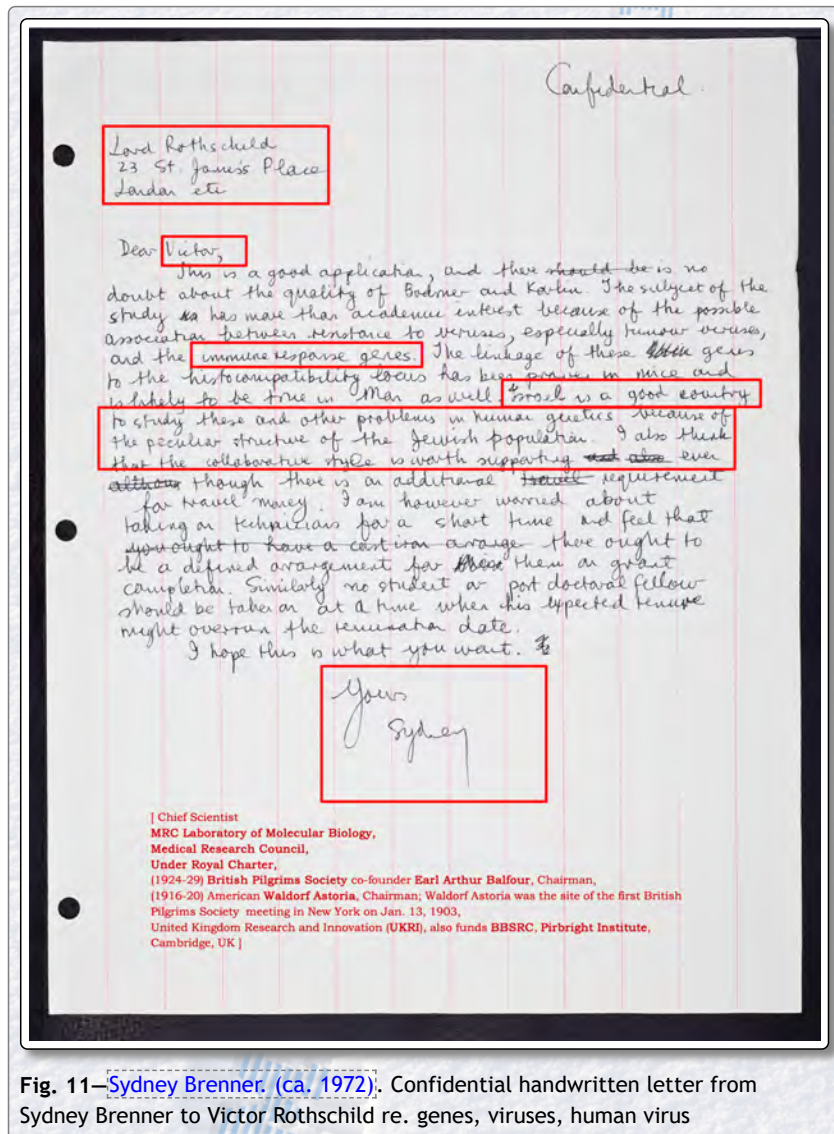 Confidential.
Lord Rothschild
23 St. James's Place
London etc
Dear Victor,
This is a good application, and there should be is no
doubt about the quality of Bodmer and Karlin. The subject of the
study has more than academic interest because of the possible
association between resistance to viruses, especially tumour viruses,
and the immune response genes. The linkage of these genes
to the histocompatibility locus has been proven in mice and
is likely to be true in Man as well. Israel is a good country
to study these and other problems in human genetics because of
the peculiar structure of the Jewish population. I also think
that the collaborative style is worth supporting and also even
although though there is an additional travel requirement
for travel money. I am however worried about
taking on technicians for a short time and feel that
you ought to have a cast iron arrange there ought to
be a defined arrangement for them on grant
completion. Similarly no student or post doctoral fellow
should be taken on at a time when his expected tenure
might overrun the termination date.
I hope this is what you want.
Yours
Sydney
[ Chief Scientist
MRC Laboratory of Molecular Biology,
Medical Research Council,
Under Royal Charter,
(1924-29) British Pilgrims Society co-founder Earl Arthur Balfour, Chairman,
(1916-20) American Waldorf Astoria, Chairman; Waldorf Astoria was the site of the first British
Pilgrims Society meeting in New York on Jan. 13, 1903,
United Kingdom Research and Innovation (UKRI), also funds BBSRC, Pirbright Institute,
Cambridge, UK ]
Fig. 11—Sydney Brenner. (ca. 1972). Confidential handwritten letter from
Sydney Brenner to Victor Rothschild re. genes, viruses, human virus